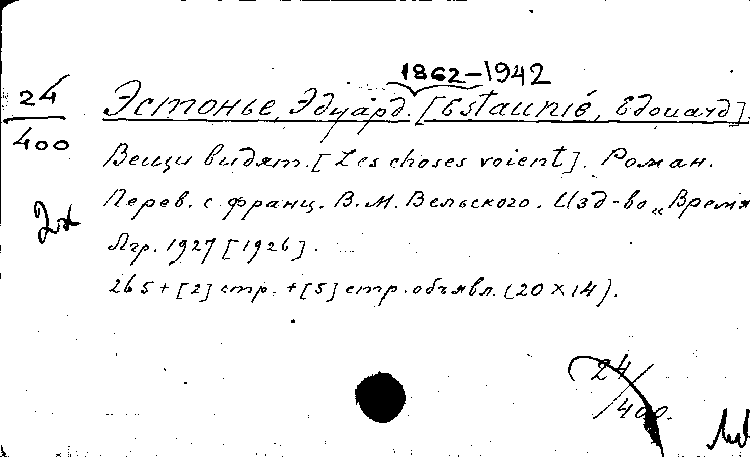 1862-1942
24
400
Эстонье, Эдуард. [Estaunié, Edouard].
Вещи видят. [Les choses voient]. Роман.
Перев. с франц. В. М. Вельского. Изд-во „Время
2х
Лгр. 1927 [1926].
265 + [2] стр. + [5] стр. объявл. (20 x 14).
24/400.